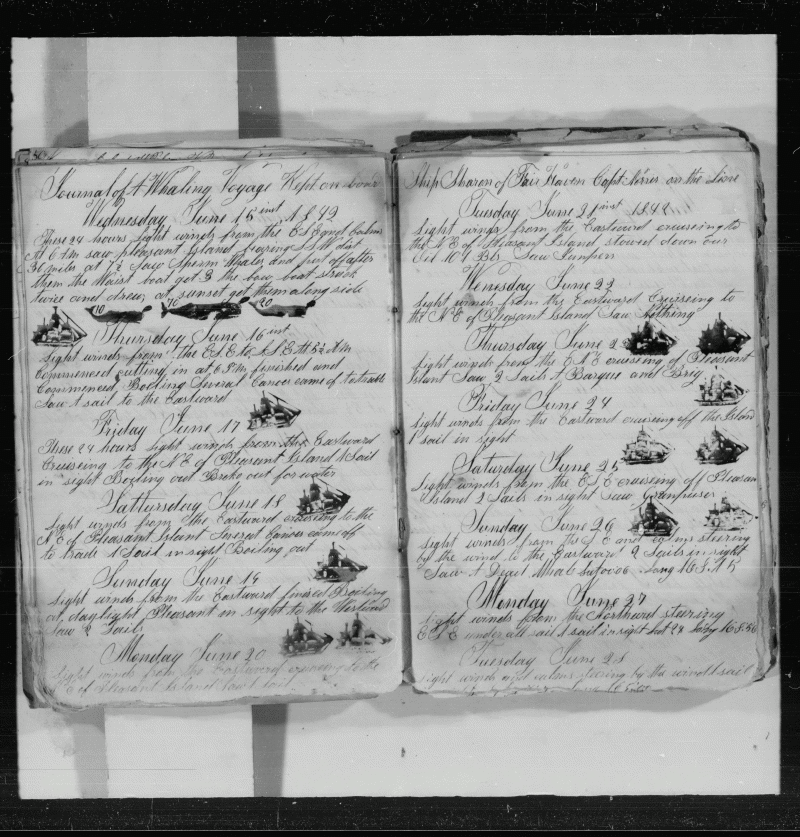 Journal of A Whaling Voyage Kept on board
Wednesday June 15 inst 1842
These 24 hours light winds from the E.S.E and Calms
At 6 AM saw pleasant Island bearing S.S.W dist
30 miles at 7½ saw Sperm Whales and put off after
them the Waist boat got 3 the bow boat struck
twice and drew at sunset got them along side
10 70 20
Thursday June 16 inst
light winds from the E.S.E to S.S.E At
Commenced cutting in at 6 PM finished and
Commenced Boiling Several Canoes came of to trade
Saw 1 sail to the Eastward
Friday June 17
These 24 hours light winds from the Eastward
Cruiseing to the N E of Pleasant Island 1 Sail
in sight Boiling out Broke out for water
Sattursday June 18
light winds from the Eastward cruiseing to the
N.E of Pleasant Island Several Canoes came off
to trade 1 Sail in sight Boiling out
Sunday June 19
light winds from the Eastward finised Boiling
at daylight Pleasant in sight to the Westward
saw 2 Sails
Monday June 20
light winds from the Eastward cruiseing to the
E of Pleasant Island Saw 1 sail
Ship Sharon of Fair Haven Capt Norris on the Line
Tuesday June 21 inst 1842
light winds from the Eastward cruiseing to
the N E of Pleasant Island stowed down our
Oil 104 Bls Saw
Wenesday June 22
light winds from the Eastward Cruiseing to
the N.E of Pleasant Island Saw Nothing
Thursday June 2
light winds from the E N E cruiseing of Pleasant
Island Saw 2 Sails A Barque and Brig
Friday June 24
light winds from the Eastward cruiseing off the Island
1 sail in sight
Saturday June 25
light winds from the E S E cruiseing off Pleasan
Island 2 Sails in sight Saw Grampuses
Sunday June 26
light winds from the S E and calms steering
by the wind to the Eastward 2 Sails in sight
Saw A Whale Long
Monday June 27
light winds from the Northward steering
E S E under all sail 1 sail in sight Lat Long
Tuesday June 28
light winds and calms steering by the wind 1 sail